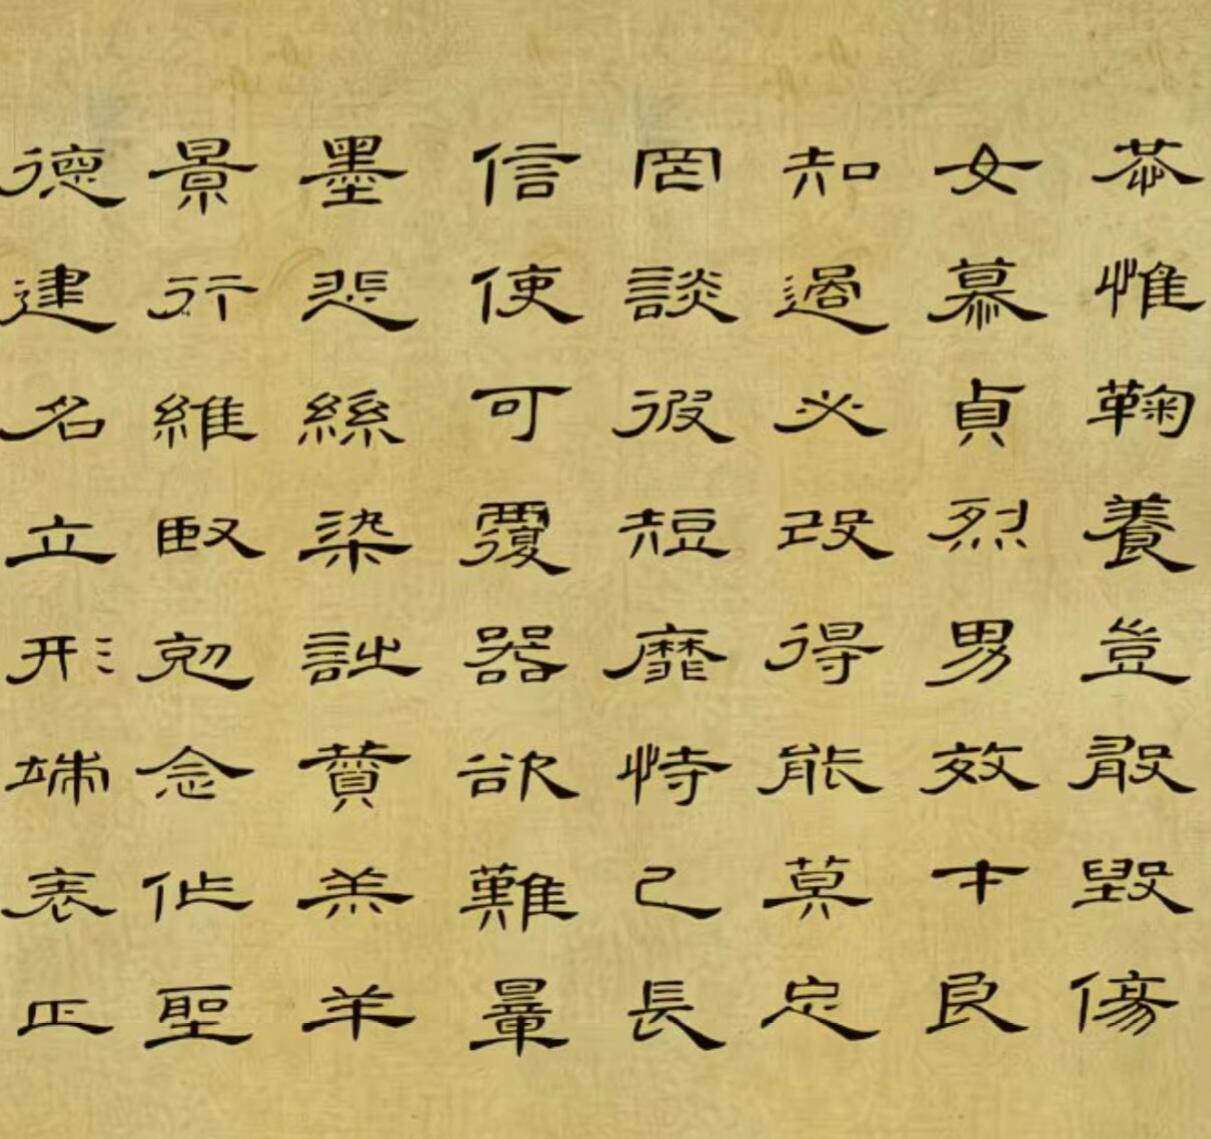 恭惟鞠養豈敢毀傷
女慕貞烈男效才良
知過必改得能莫忘
罔談彼短靡恃己長
信使可覆器欲難量
墨悲絲染詩贊羔羊
景行維臤剋念作聖
德建名立形端表正